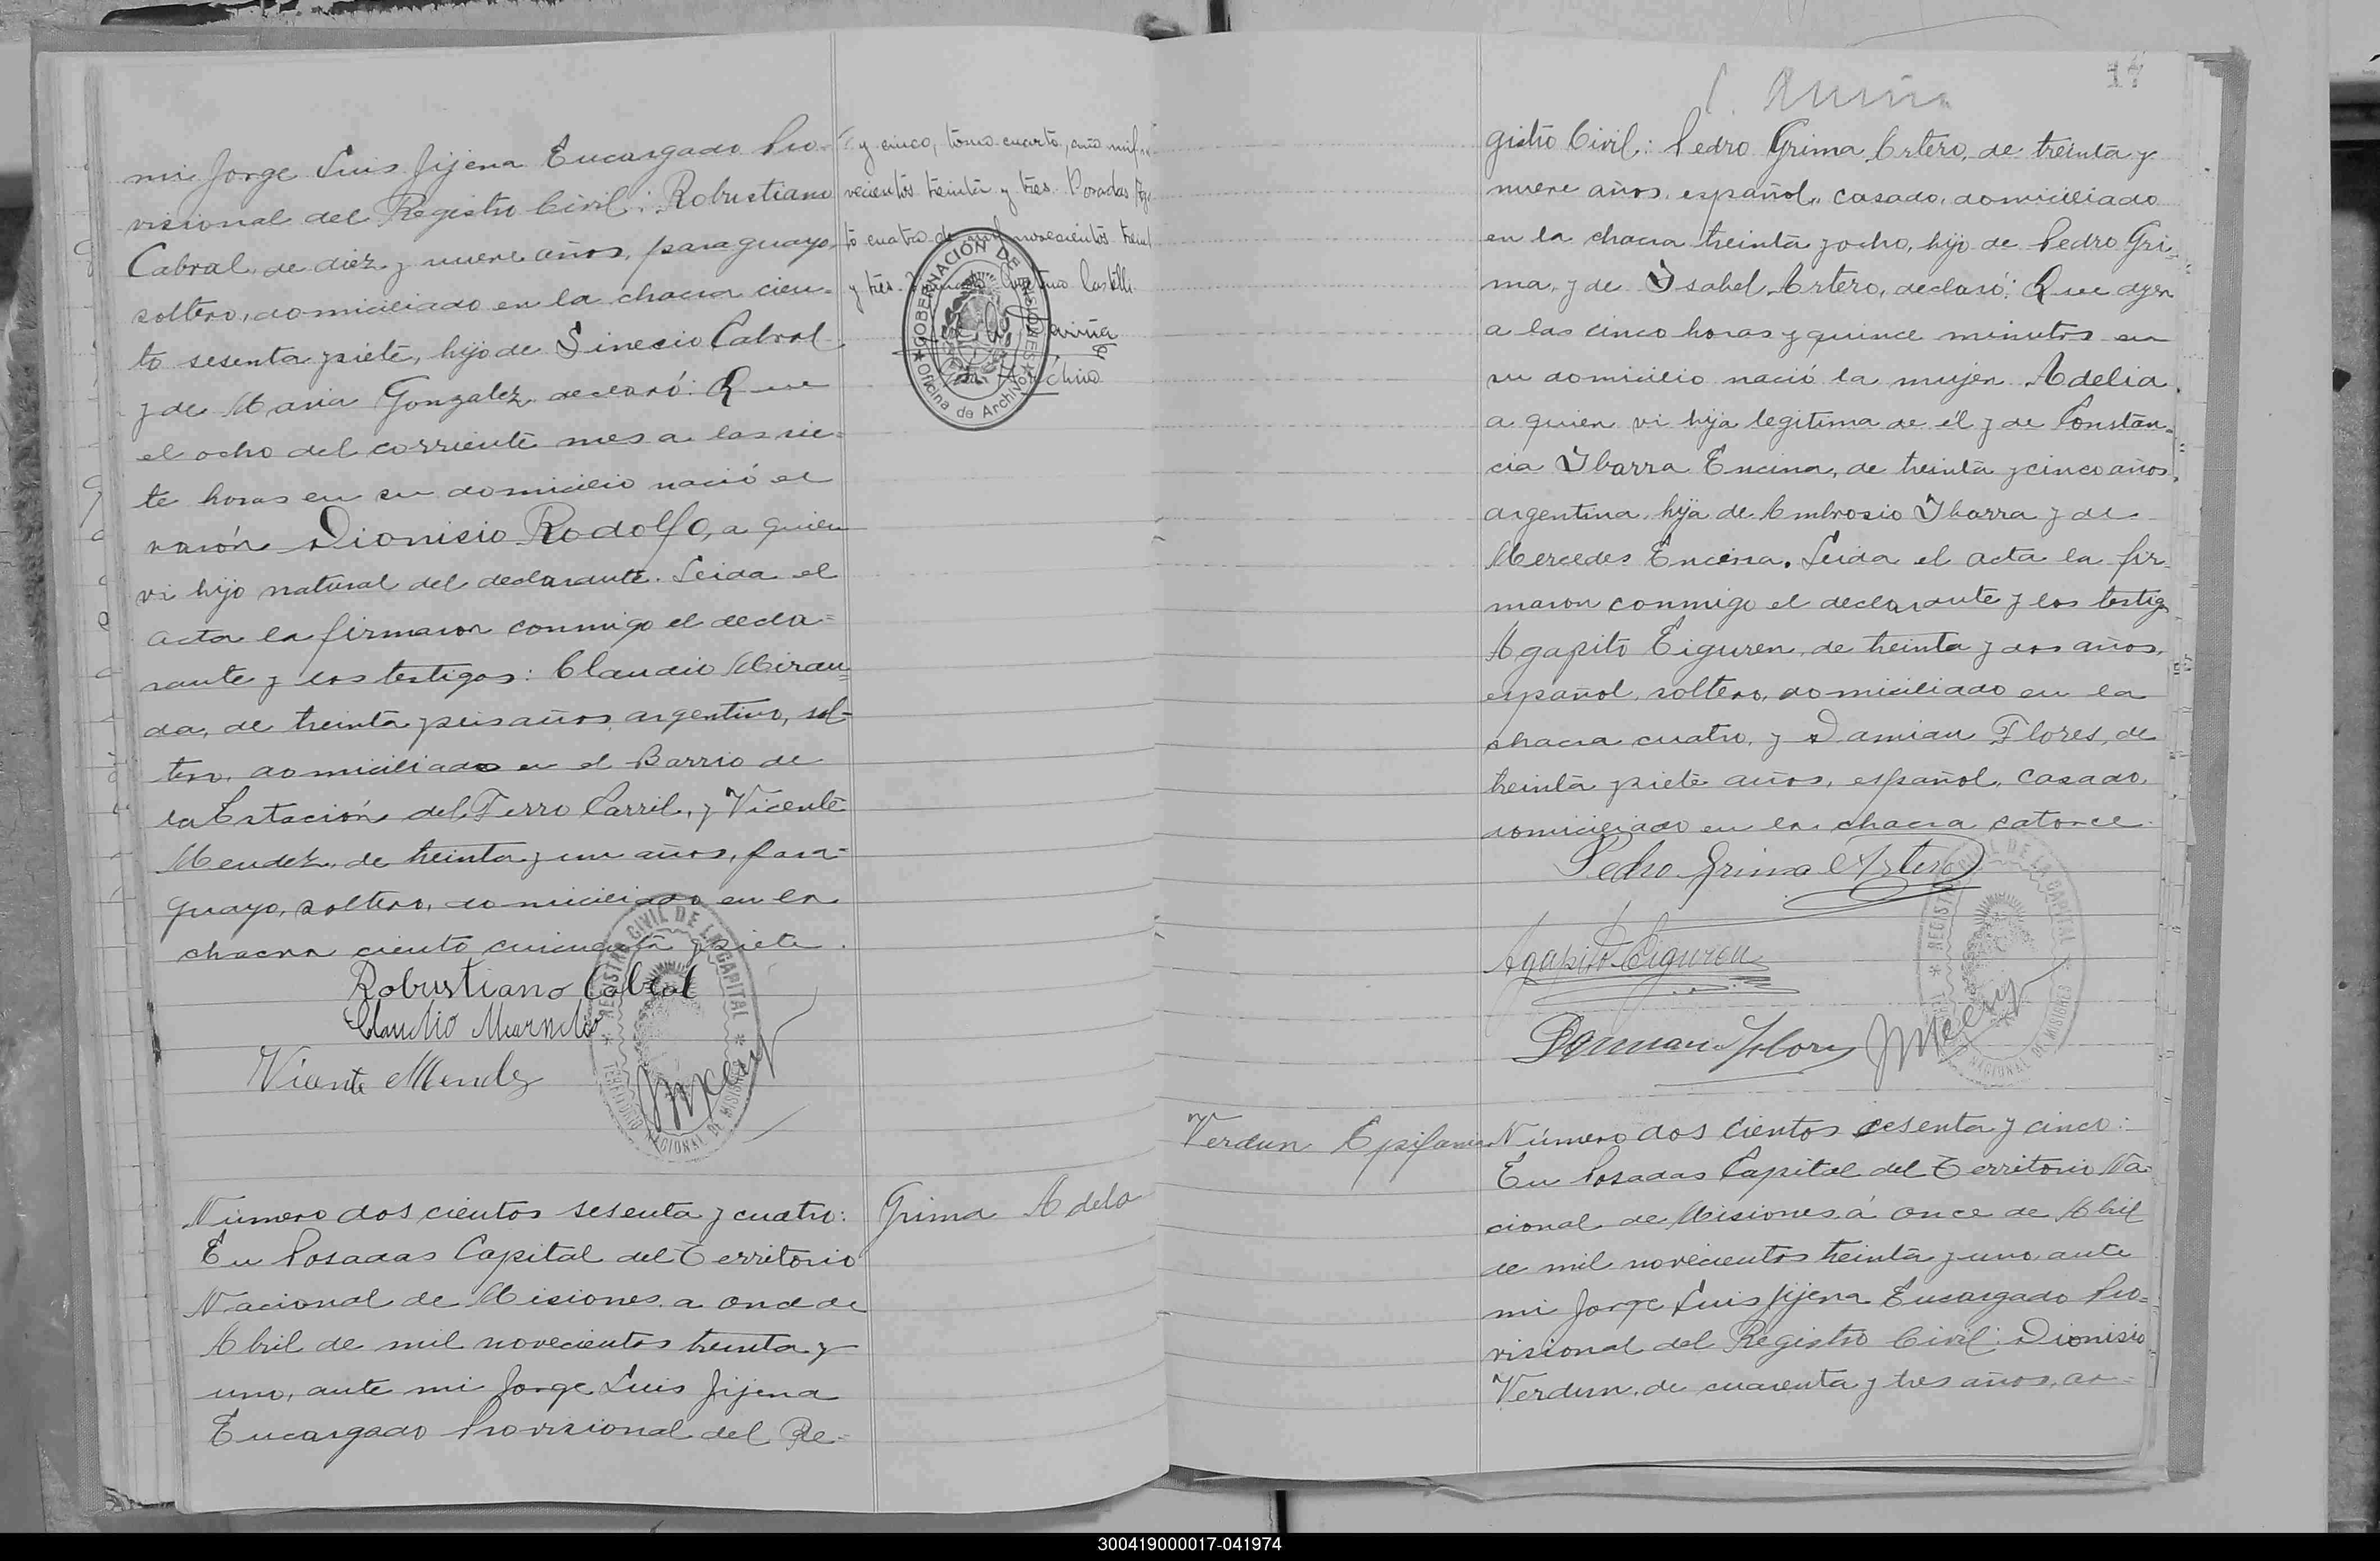 mi Jorge Luis Jijena Encargado Pro-
visional del Registro Civil: Robustiano
Cabral, de diez y nueve años, paraguayo,
soltero, domiciliado en la chacra cien-
to sesenta y siete, hijo de Sinecio Cabral
y de Maria Gonzalez, declaró: Que
el ocho del corriente mes a las sie-
te horas en su domicilio nació el
varón Dionisio Rodolfo, a quien
vi hijo natural del declarante. Leida el
acta la firmaron conmigo el decla=
rante y los testigos: Claudio Miran=
da, de treinta y seis años, argentino, sol-
tero, domiciliado en el Barrio de
la Estación del Ferro Carril, y Vicente
Mendez, de treinta y un años, para-
guayo, soltero, domiciliado en la
chacra ciento cincuenta y siete.
Robustiano Cabral
Claudio Miranda
Vicente Mendez
REGISTRO CIVIL DE LA CAPITAL
TERRITORIO NACIONAL DE MISIONES
Número dos cientos sesenta y cuatro:
En Posadas Capital del Territorio
Nacional de Misiones a once de
Abril de mil novecientos treinta y
uno, ante mi Jorge Luis Jijena
Encargado Provisional del Re=
y cinco, tomo cuarto, año mil no-
vecientos treinta y tres. Posadas
cuatro de mil novecientos treint
y tres.
GOBERNACIÓN DE MISIONES
Oficina de Archivo
Archivo
Grima Adela
17
gistro Civil: Pedro Grima Artero, de treinta y
nueve años, español, casado, domiciliado
en la chacra treinta y ocho, hijo de Pedro Gri-
ma, y de Isabel Artero, declaró: Que ayer
a las cinco horas y quince minutos en
su domicilio nació la mujer Adelia
a quien vi hija legitima de él y de Constan-
cia Ibarra Encina, de treinta y cinco años,
argentina, hija de Ambrosio Ibarra y de
Mercedes Encina. Leida el acta la fir
maron conmigo el declarante y los testig
Agapito Eiguren, de treinta y dos años,
español, soltero, domiciliado en la
chacra cuatro, y Damian Flores, de
treinta y siete años, español, casado,
domiciliado en la chacra catorce.
Pedro Grima Artero
Agapito Eiguren
Damian Flores
REGISTRO CIVIL DE LA CAPITAL
NACIONAL DE MISIONES
Verdun Epifania
Número dos cientos sesenta y cinco:
En Posadas Capital del Territorio Na-
cional de Misiones á once de Abril
de mil novecientos treinta y uno, ante
mi Jorge Luis Jijena Encargado Pro=
visional del Registro Civil: Dionisio
Verdun, de cuarenta y tres años, ar=
300419000017-041974